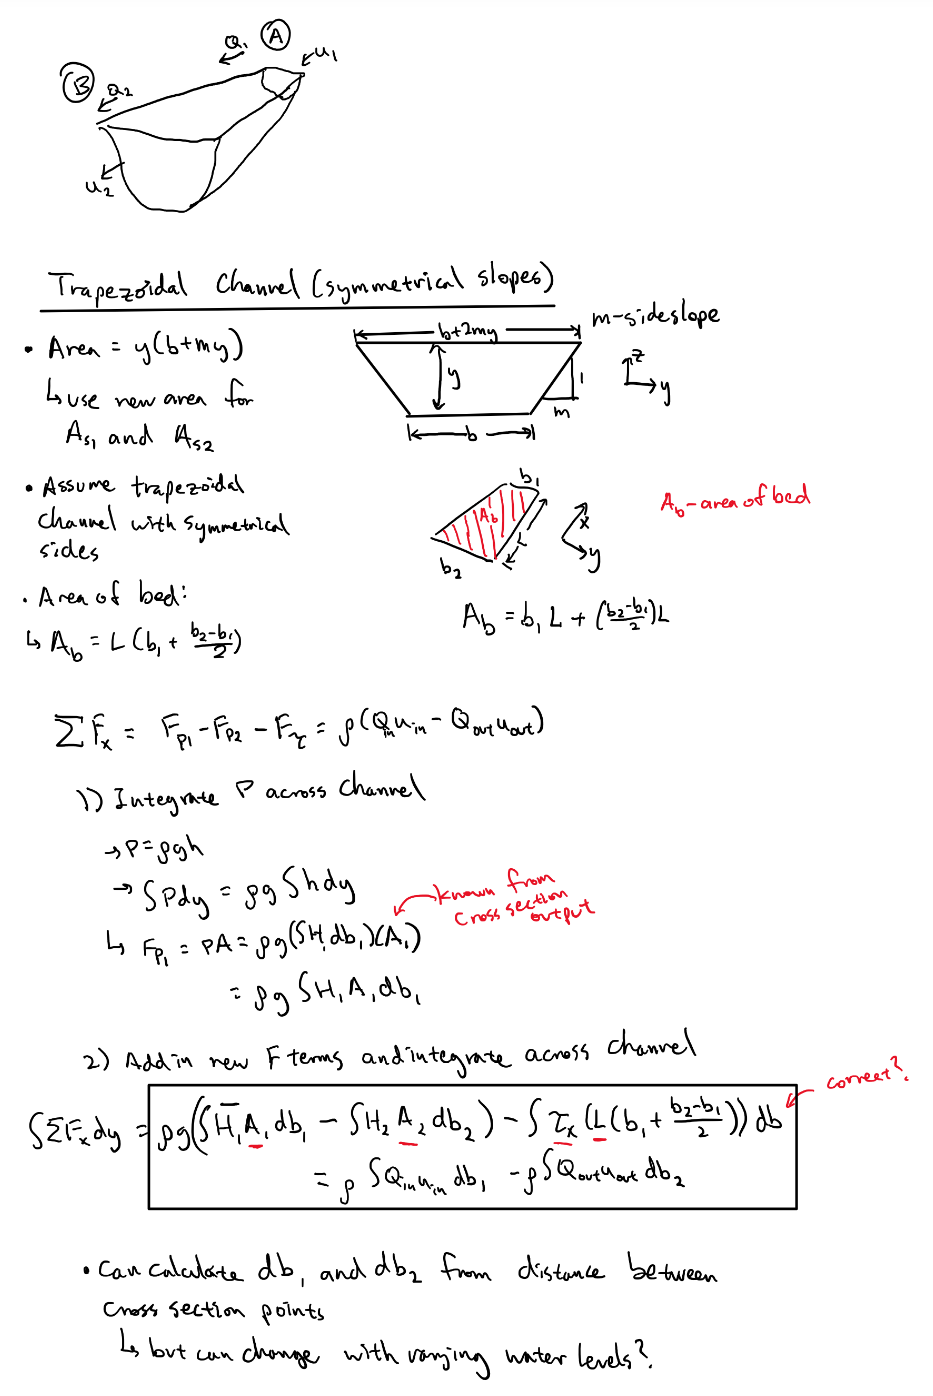 Q₁ Ⓐ u₁
Ⓑ Q₂
u₂
Trapezoidal Channel (symmetrical slopes)
• Area = y(b+my)
↳ use new area for
A_{s1} and A_{s2}
b+2my
m-sideslope
y
1
m
b
z
y
• Assume trapezoidal
channel with symmetrical
sides
b₁
A_b
L
b₂
x
y
A_b - area of bed
• Area of bed:
↳ A_b = L(b₁ + (b₂-b₁)/2)
A_b = b₁L + ((b₂-b₁)/2)L
ΣF_x = F_{p1} - F_{p2} - F_τ = ρ(Q_{in}u_{in} - Q_{out}u_{out})
1) Integrate P across channel
→ P = ρgh
→ ∫Pdy = ρg∫hdy
known from
cross section
output
↳ F_{p1} = PA = ρg(∫H₁db₁)(A₁)
= ρg∫H₁A₁db₁
2) Add in new F terms and integrate across channel
correct?
∫ΣF_xdy = ρg(∫H̄₁A₁db₁ - ∫H₂A₂db₂) - ∫τ_x(L(b₁ + (b₂-b₁)/2))db
= ρ∫Q_{in}u_{in}db₁ - ρ∫Q_{out}u_{out}db₂
• Can calculate db₁ and db₂ from distance between
cross section points
↳ but can change with varying water levels?